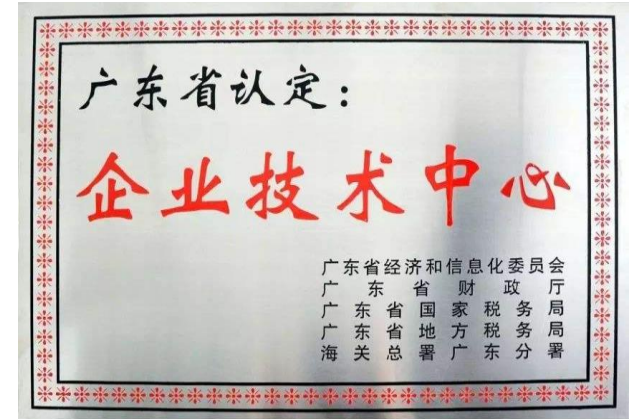 广东省认定：
企业技术中心
广东省经济和信息化委员会
广东省财政厅
广东省国家税务局
广东省地方税务局
海关总署广东分署